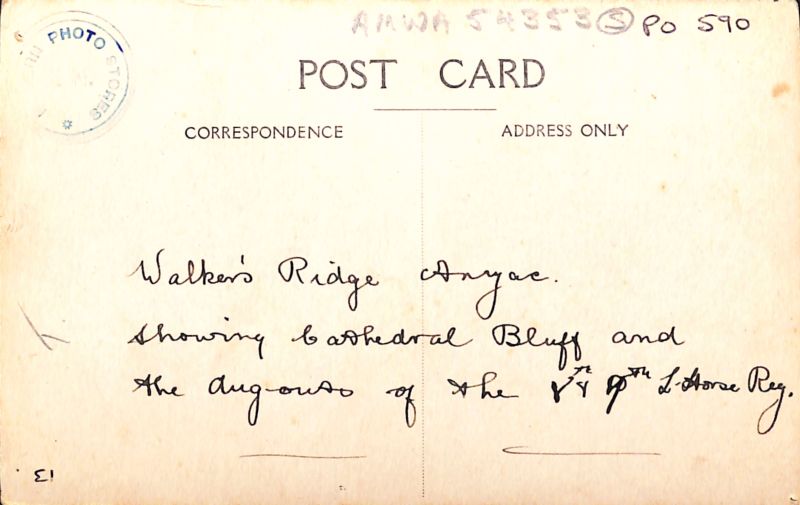 AMWA 54353 S PO 590
PHOTO STORES
POST CARD
CORRESPONDENCE
ADDRESS ONLY
Walker's Ridge Anzac.
showing Cathedral Bluff and
the dug-outs of the 8th & 9th L-Horse Reg.
13